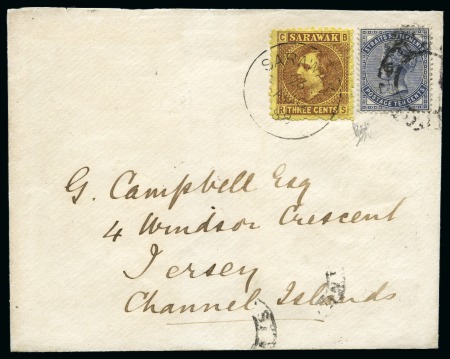 C SARAWAK B
R THREE CENTS S
STRAITS SETTLEMENTS
POSTAGE TEN CENTS
G. Campbell Esq
4 Windsor Crescent
Jersey
Channel Islands